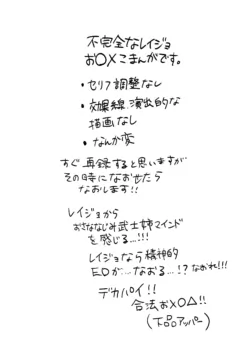 不完全なレイジョ
お〇×こまんがです。
・セリフ調整なし
・効果線、演出的な
描画なし
・なんか変
すぐ再録すると思いますが
その時になおせたら
なおします!!
レイジョから
おさななじみ武士姉マインド
を感じる…!!!
レイジョなら精神的
EDが…なおる…!?なおれ!!!
デカパイ!!
合法お×〇△!!
(下品アッパー)